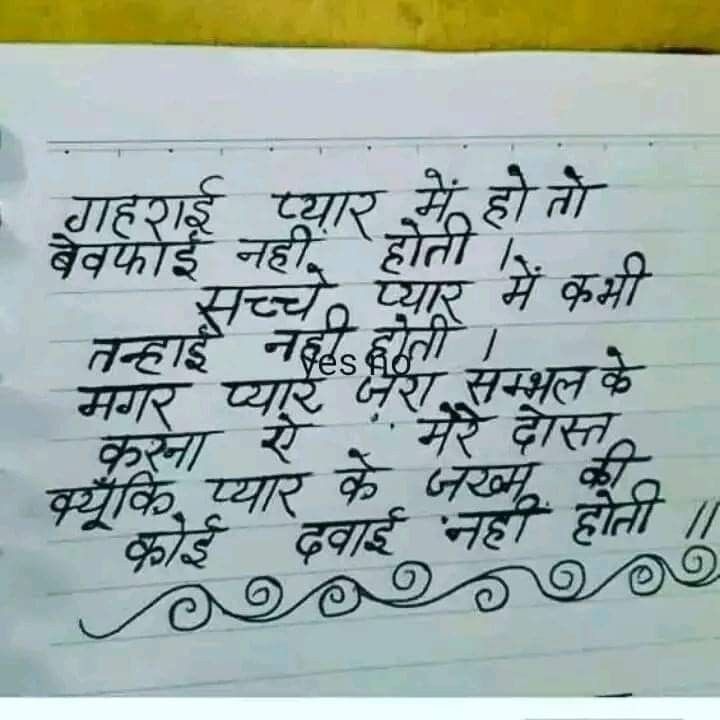 गहराई प्यार में हो तो
बेवफाई नही होती ।
सच्चे प्यार में कभी
तन्हाई नही होती ।
yes no
मगर प्यार ज़रा सम्भल के
करना ऐ मेरे दोस्त
क्यूँकि प्यार के जख्म की
कोई दवाई नही होती ॥